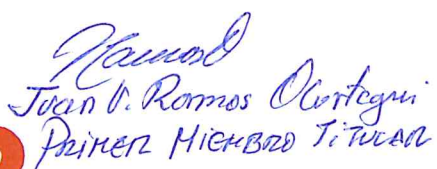 Juan V. Ramos Olortegui
PRIMER MIEMBRO TITULAR